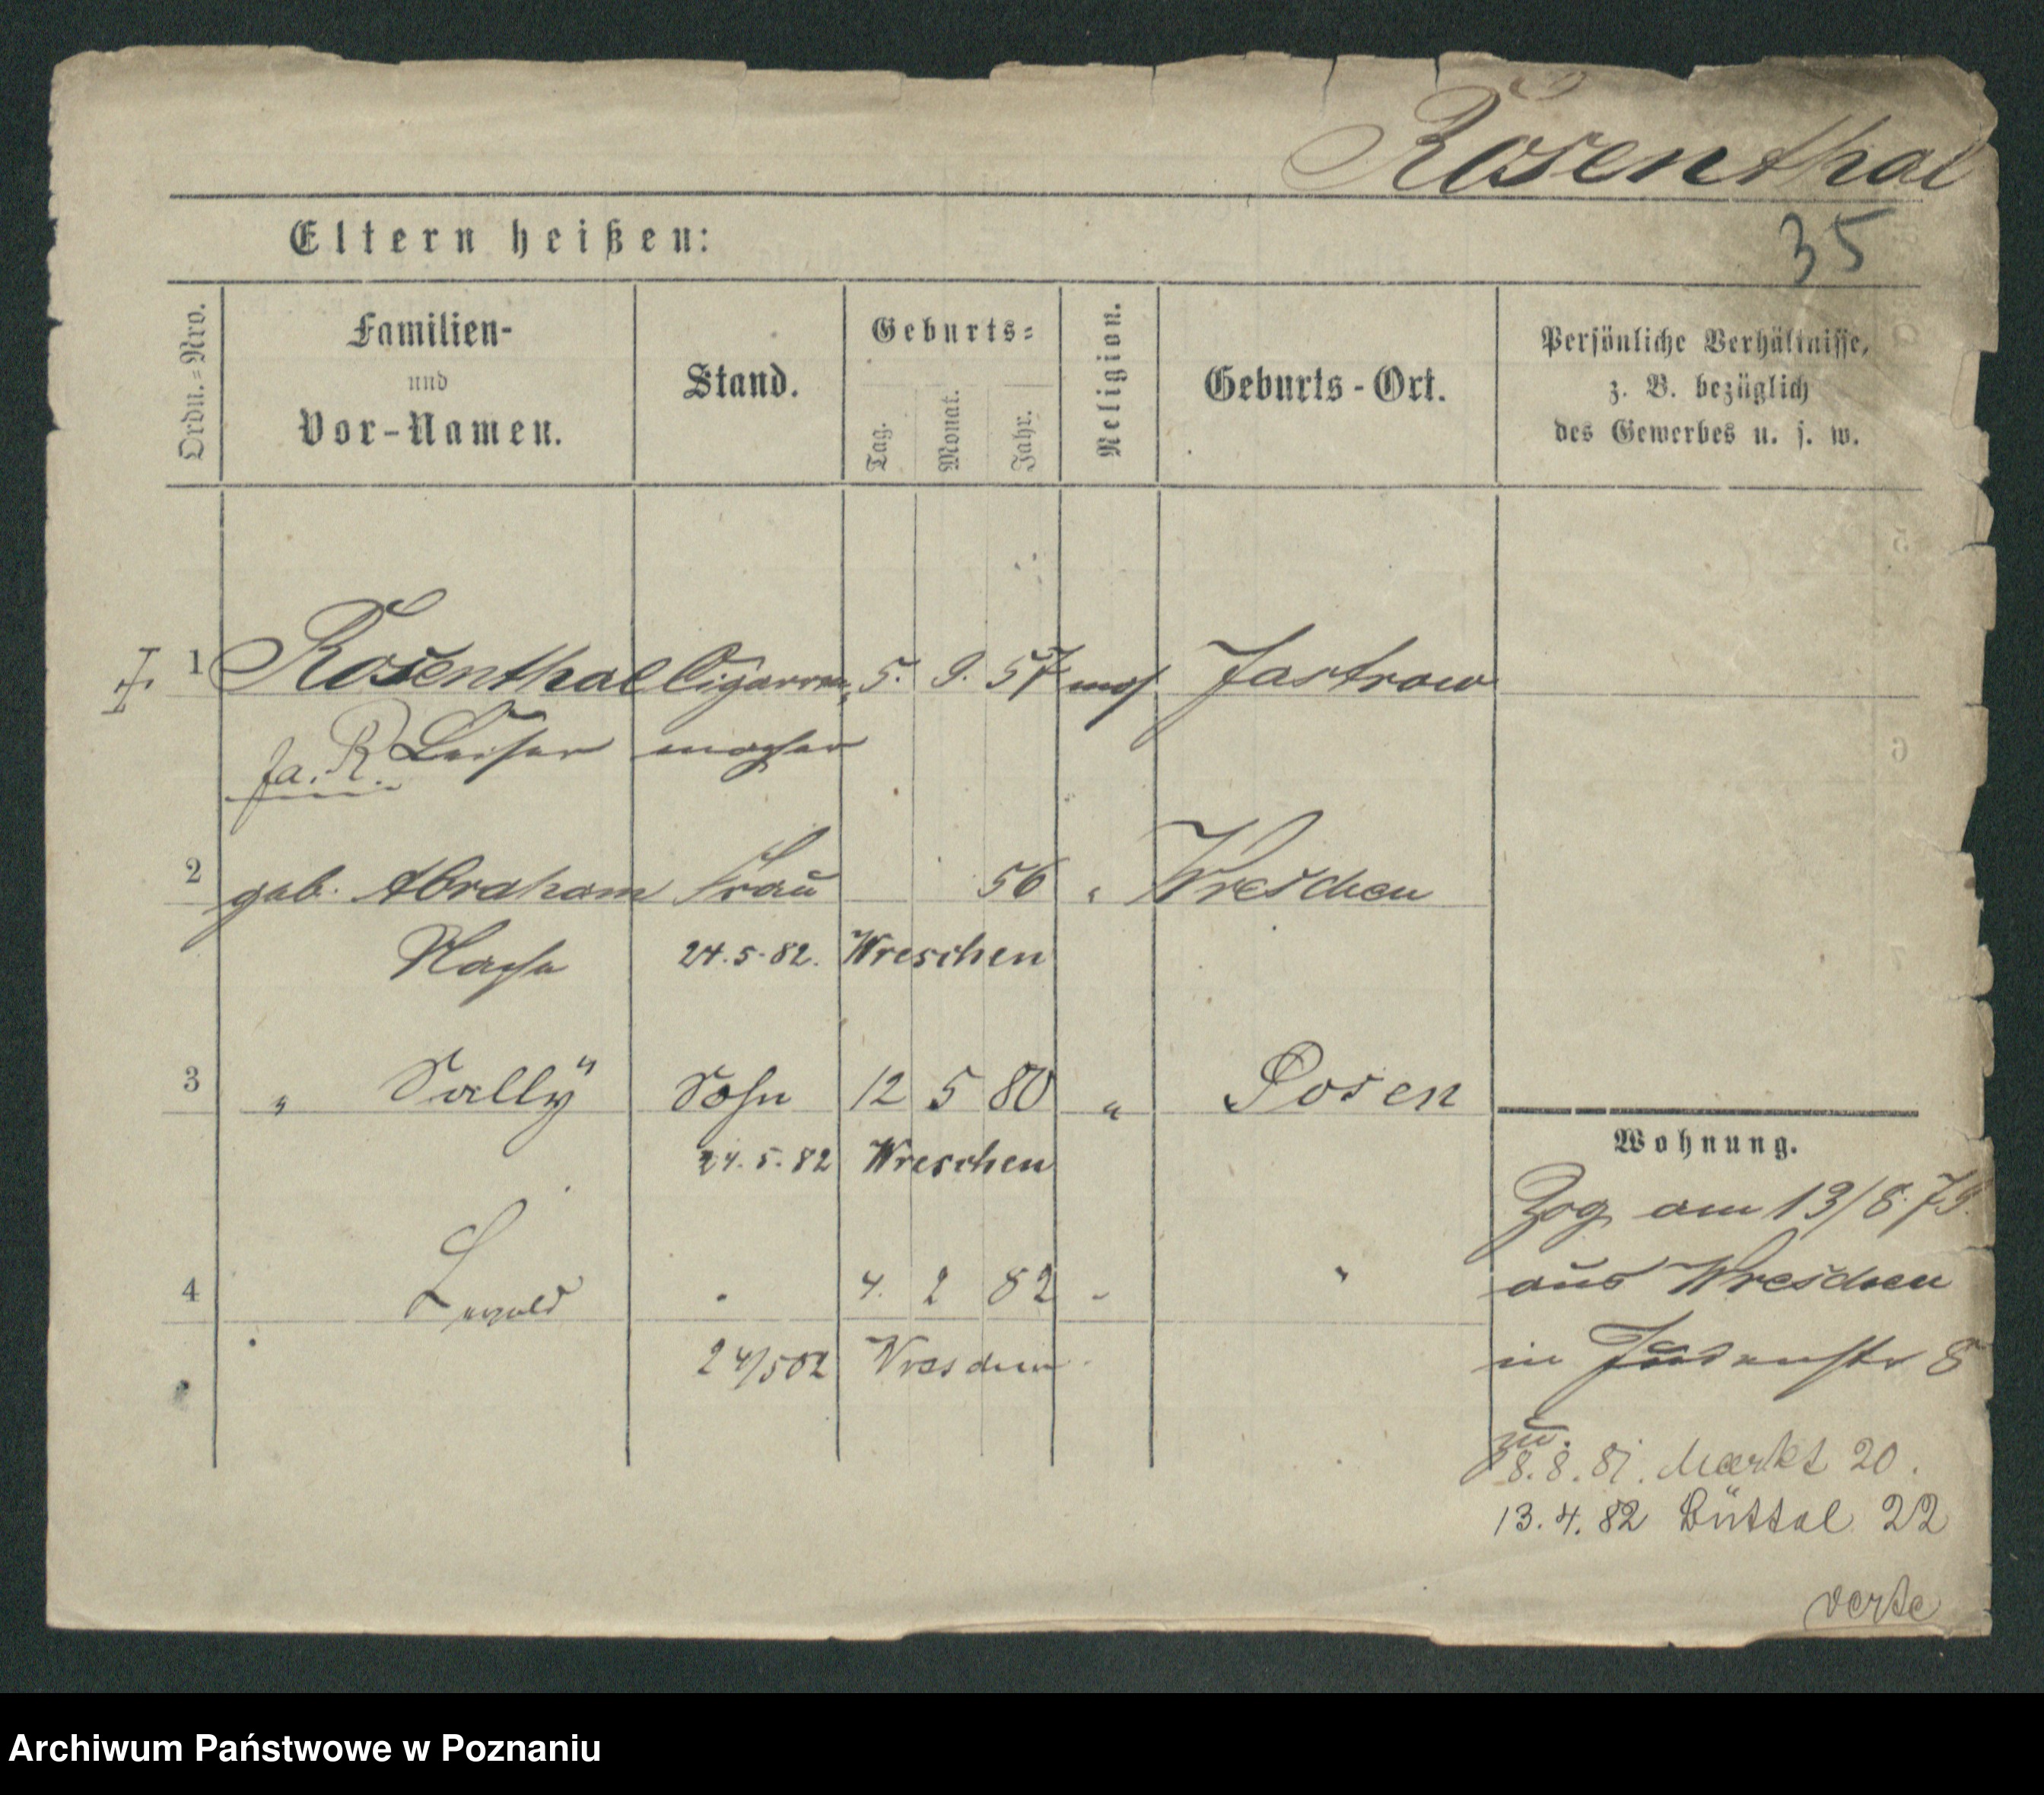 Rosenthal
35
Eltern heißen:
Ordn.=Nro.
Familien-
und
Vor-Namen.
Stand.
Geburts=
Tag.
Monat.
Jahr.
Religion.
Geburts-Ort.
Persönliche Verhältnisse,
z. B. bezüglich
des Gewerbes u. s. w.
1 Rosenthal Cigarren= 5. 9. 57 mos. Jastrow
fa. R. Leiser macher
2 geb. Abraham Frau 56 " Wreschen
24.5.82. Wreschen
3 " Sally Sohn 12 5 80 " Posen
24.5.82 Wreschen
Wohnung.
Zog am 13/8.79.
4 4. 2 82 "
aus Wreschen
24/5 82 Wreschen
in Judenstr 8
zu.
8.8.81. Markt 20.
13.4.82 Büttel 22
verte
Archiwum Państwowe w Poznaniu